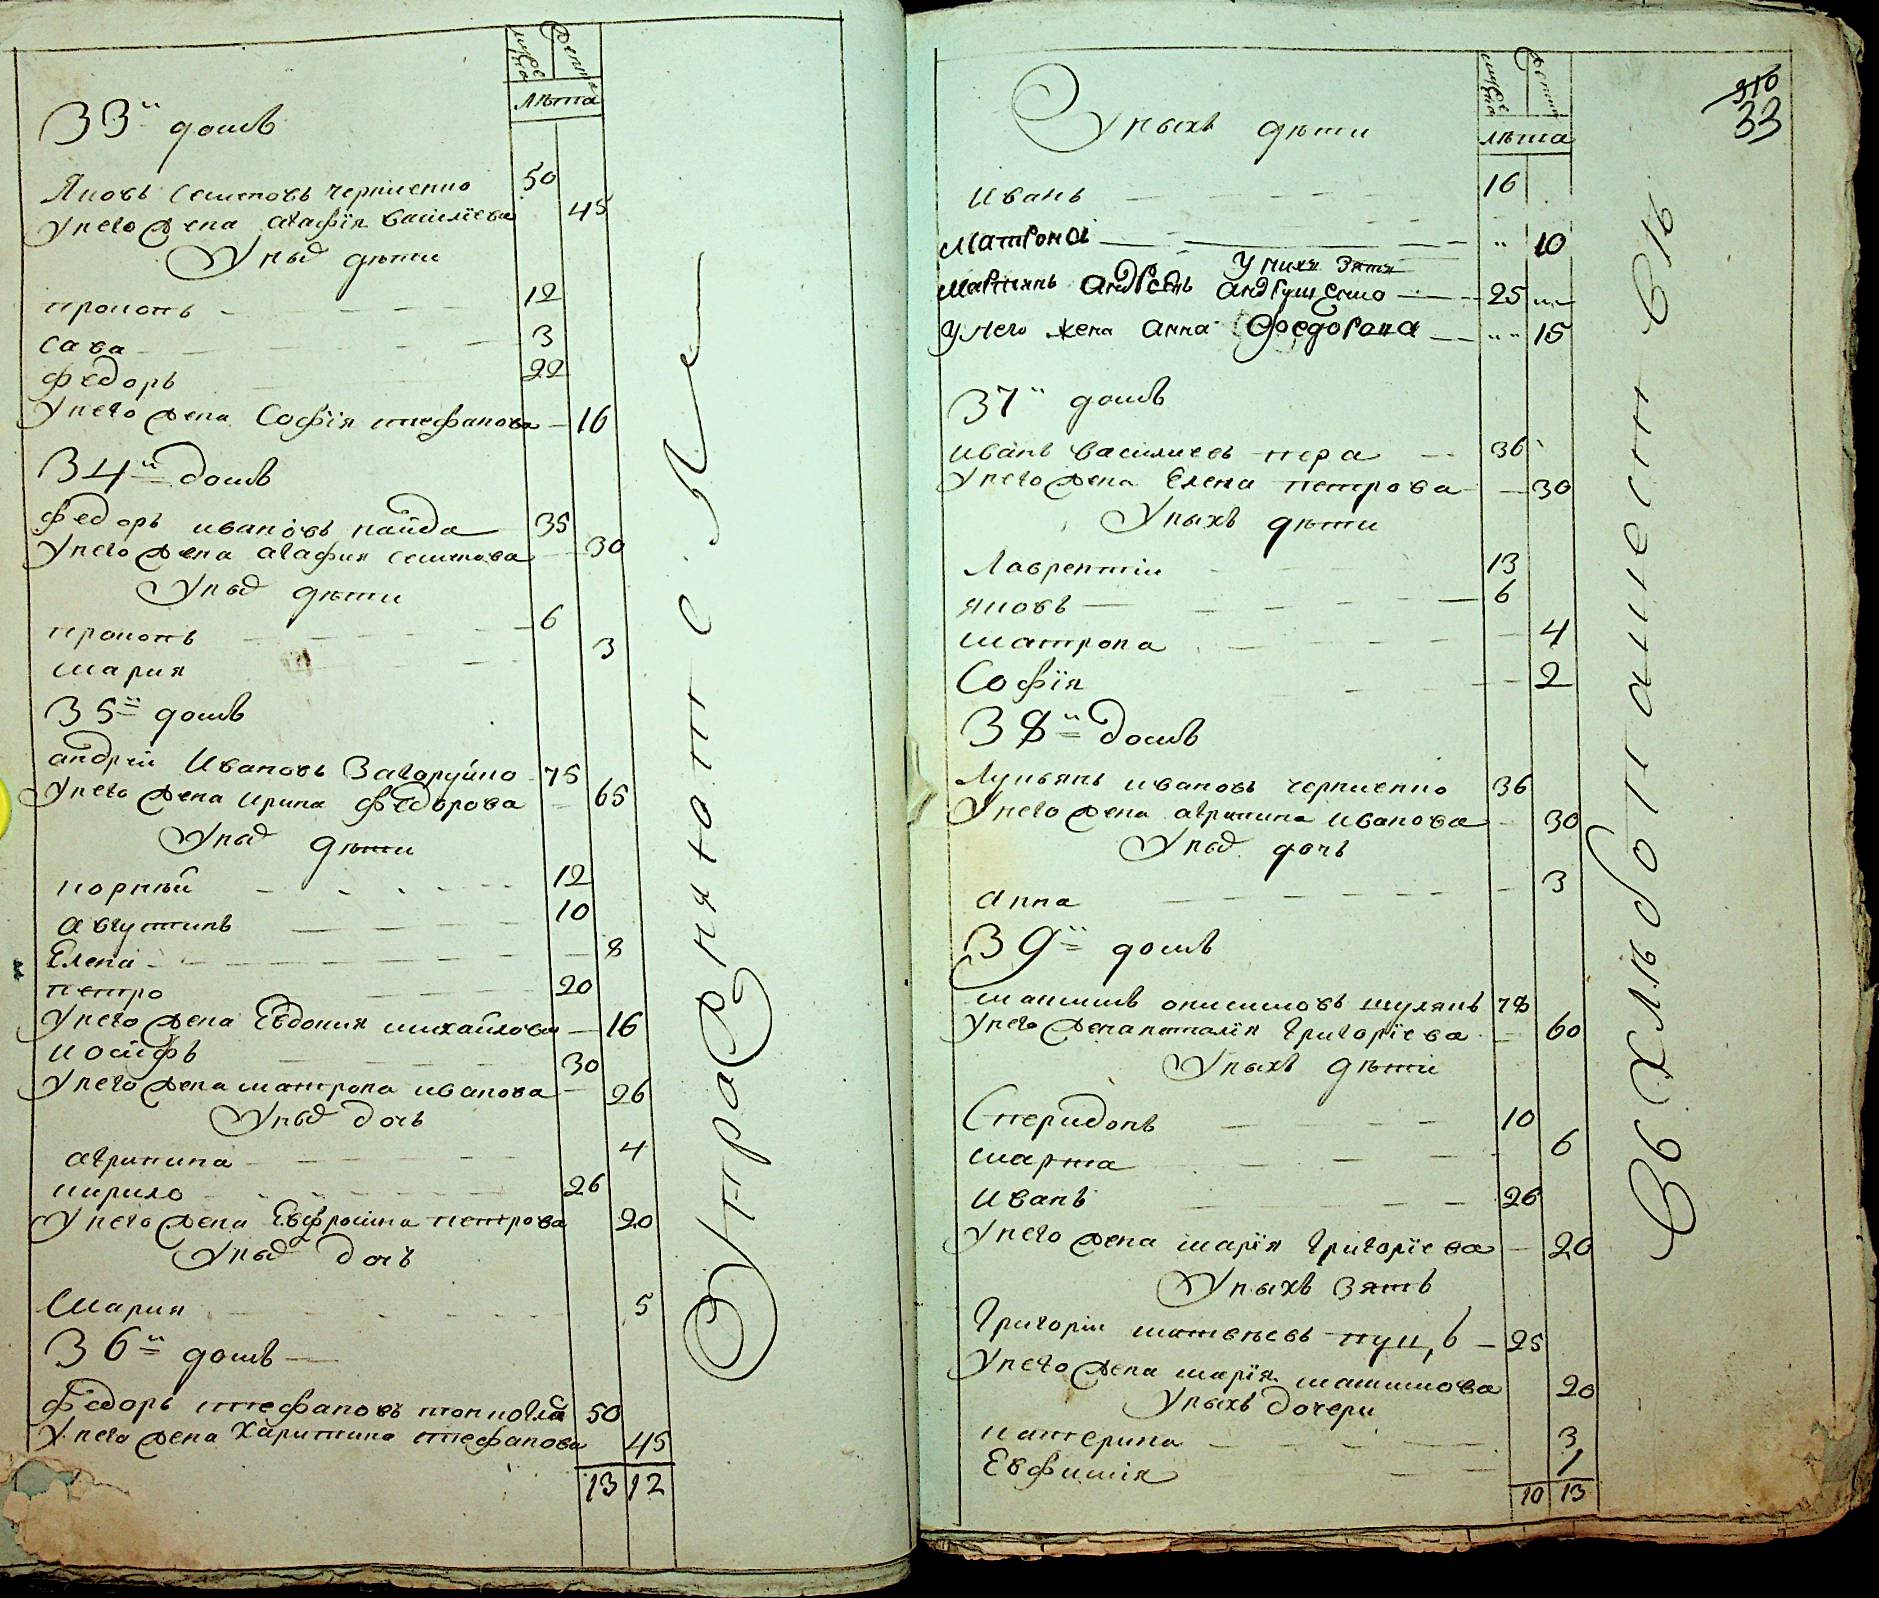 мужеска
женска
лѣта
33й домъ
Яковъ Семеновъ черниенко 50
У него жена агафія василіева 45
У них дѣти
прокопъ 12
сава 3
федоръ 22
У него жена Софія стефанова 16
34й домъ
федоръ ивановъ кайда 35
У него жена агафия семенова 30
У них дѣти
прокопъ 6
мария 3
35й домъ
андрей Ивановъ Загоруйко 75
У него жена ирина федорова 65
У них дѣти
корнѣй 12
августинъ 10
Елена 8
петро 20
У него жена Евдокия михайлова 16
иосифъ 30
У него жена матрона иванова 26
У них дочь
агрипина 4
кирило 26
У него жена Евфросина петрова 20
У них дочь
Мария 5
36й домъ
федоръ стефановъ 50
У него жена Харитина стефанова 45
13 12
мужеска
женска
лѣта
310
33
У ныхъ дѣти
иванъ 16
матрона 10
У нихъ зять
андрушенко 25
У него жена анна Феодорова 15
37й домъ
иванъ василиевъ пера 36
У него жена Елена петрова 30
У ныхъ дѣти
Лаврентіи 13
яковъ 6
матрона 4
Софія 2
38й домъ
Лукьянъ ивановъ черниенко 36
У него жена агрипина иванова 30
У них дочь
анна 3
39й домъ
максимъ онисимовъ шулякъ 78
У него жена наталія Григоріева 60
У ныхъ дѣти
Спиридонъ 10
марта 6
иванъ 26
У него жена марія Григоріева 20
У ныхъ зять
Григоріи матвѣевъ куцъ 25
У него жена марія максимова 20
У ныхъ дочери
катерина 3
Евфимія 1
10 13